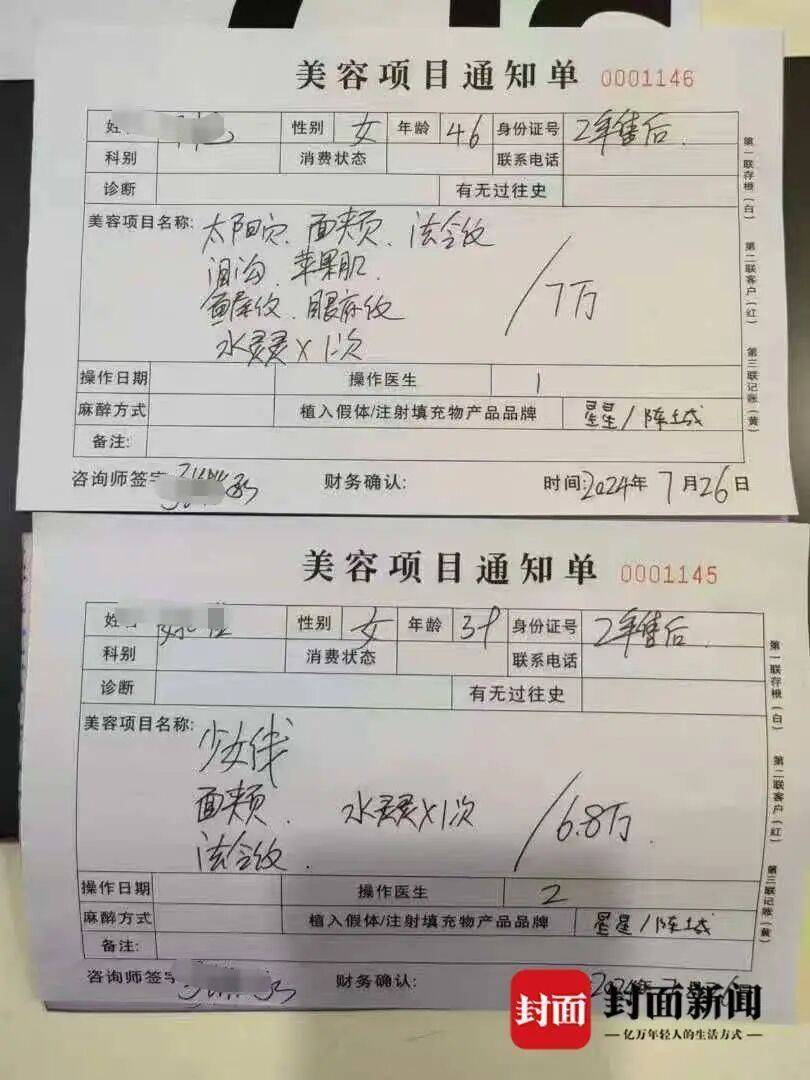 美容项目通知单 0001146
性别 女 年龄 46 身份证号 2年售后
科别 消费状态 联系电话
诊断 有无过往史
美容项目名称: 太阳穴、面颊、法令纹
泪沟、苹果肌
鱼尾纹、眼底纹 /7万
水灵灵×1次
操作日期 操作医生 1
麻醉方式 植入假体/注射填充物产品品牌 星星/陈城
备注:
咨询师签字 财务确认: 时间:2024年7月26日
第一联存根(白)
第二联客户(红)
第三联记账(黄)
美容项目通知单 0001145
性别 女 年龄 身份证号 2年售后
科别 消费状态 联系电话
诊断 有无过往史
美容项目名称:
少女线
面颊、 水灵灵×1次 /6.8万
法令纹、
操作日期 操作医生 2
麻醉方式 植入假体/注射填充物产品品牌 星星/陈城
备注:
咨询师签字 财务确认: 2024年7月26日
第一联存根(白)
第二联客户(红)
第三联记账(黄)
封面 封面新闻
亿万年轻人的生活方式